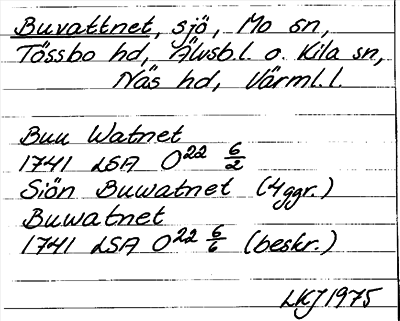 Buvattnet, sjö, Mo sn,
Tössbo hd, Älvsb.l. o. Kila sn,
Näs hd, Värml.l.
Buu Watnet
1741 LSA O22 6/2
Siön Buwatnet (4ggr.)
Buwatnet
1741 LSA O22 6/6 (beskr.)
LKJ 1975